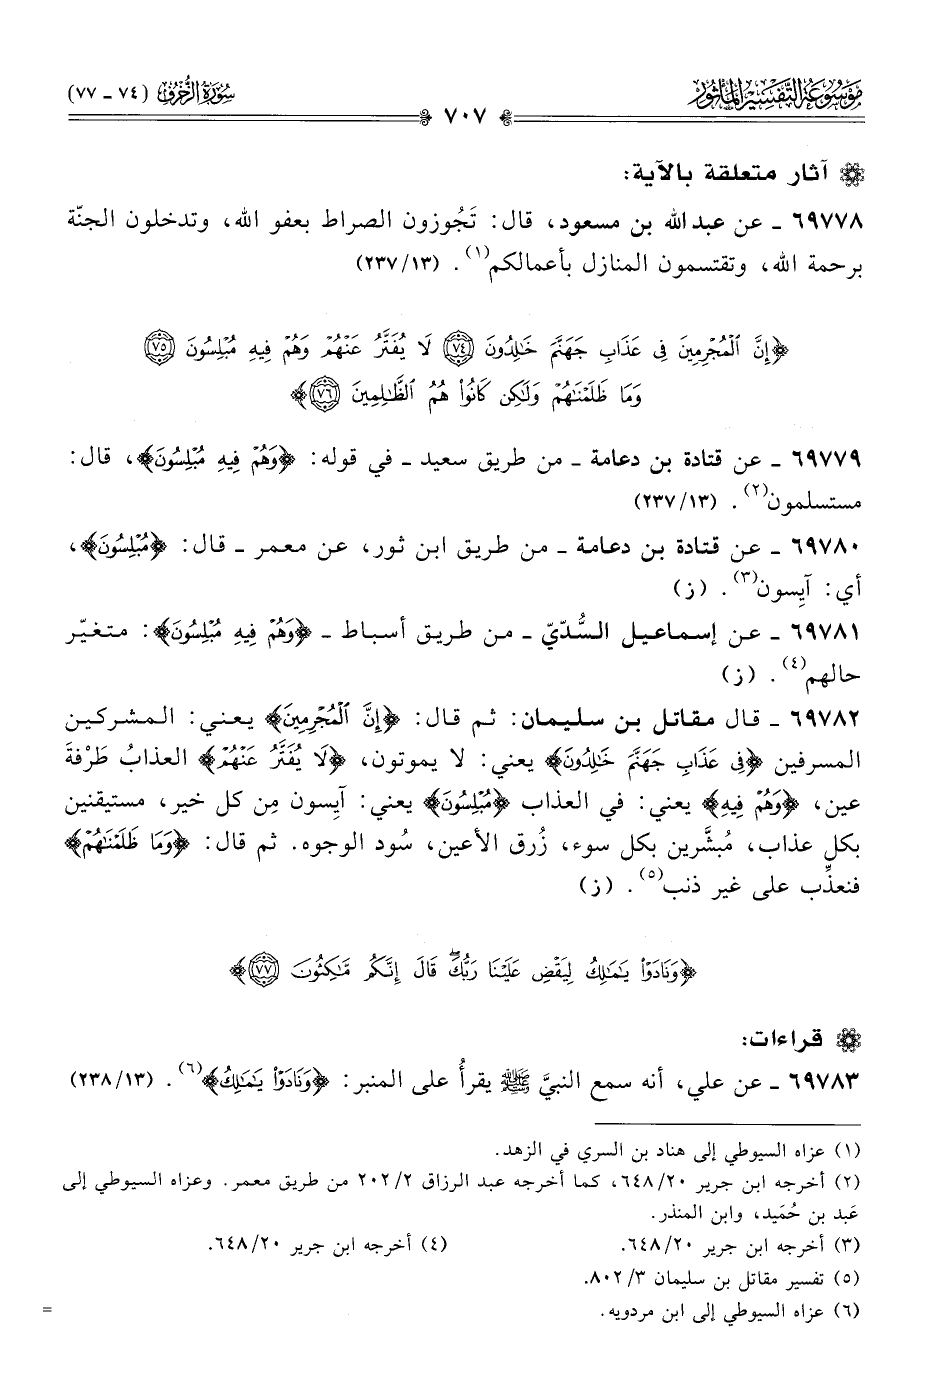 موسوعة التفسير المأثور
سورة الزخرف (٧٤ - ٧٧)
٧٠٧
آثار متعلقة بالآية:
٦٩٧٧٨ - عن عبد الله بن مسعود، قال: تَجُوزون الصراط بعفو الله، وتدخلون الجنّة
برحمة الله، وتقتسمون المنازل بأعمالكم(١). (٢٣٧/١٣)
﴿إِنَّ ٱلْمُجْرِمِينَ فِى عَذَابِ جَهَنَّمَ خَٰلِدُونَ ٧٤ لَا يُفَتَّرُ عَنْهُمْ وَهُمْ فِيهِ مُبْلِسُونَ ٧٥
وَمَا ظَلَمْنَٰهُمْ وَلَٰكِن كَانُوا۟ هُمُ ٱلظَّٰلِمِينَ ٧٦﴾
٦٩٧٧٩ - عن قتادة بن دعامة - من طريق سعيد - في قوله: ﴿وَهُمْ فِيهِ مُبْلِسُونَ﴾، قال:
مستسلمون(٢). (٢٣٧/١٣)
٦٩٧٨٠ - عن قتادة بن دعامة - من طريق ابن ثور، عن معمر - قال: ﴿مُبْلِسُونَ﴾،
أي: آيِسون(٣). (ز)
٦٩٧٨١ - عن إسماعيل السُّدّيّ - من طريق أسباط - ﴿وَهُمْ فِيهِ مُبْلِسُونَ﴾: متغيّر
حالهم(٤). (ز)
٦٩٧٨٢ - قال مقاتل بن سليمان: ثم قال: ﴿إِنَّ ٱلْمُجْرِمِينَ﴾ يعني: المشركين
المسرفين ﴿فِى عَذَابِ جَهَنَّمَ خَٰلِدُونَ﴾ يعني: لا يموتون، ﴿لَا يُفَتَّرُ عَنْهُمْ﴾ العذابُ طَرْفةَ
عين، ﴿وَهُمْ فِيهِ﴾ يعني: في العذاب ﴿مُبْلِسُونَ﴾ يعني: آيِسون مِن كل خير، مستيقنين
بكل عذاب، مُبشَّرين بكل سوء، زُرق الأعين، سُود الوجوه. ثم قال: ﴿وَمَا ظَلَمْنَٰهُمْ﴾
فنعذِّب على غير ذنب(٥). (ز)
﴿وَنَادَوْا۟ يَٰمَٰلِكُ لِيَقْضِ عَلَيْنَا رَبُّكَۖ قَالَ إِنَّكُم مَّٰكِثُونَ ٧٧﴾
قراءات:
٦٩٧٨٣ - عن علي، أنه سمع النبيَّ ﷺ يقرأُ على المنبر: ﴿وَنَادَوْا۟ يَٰمَٰلِكُ﴾(٦). (٢٣٨/١٣)
(١) عزاه السيوطي إلى هناد بن السري في الزهد.
(٢) أخرجه ابن جرير ٢٠/ ٦٤٨، كما أخرجه عبد الرزاق ٢/ ٢٠٢ من طريق معمر. وعزاه السيوطي إلى
عَبد بن حُمَيد، وابن المنذر.
(٣) أخرجه ابن جرير ٢٠/ ٦٤٨. (٤) أخرجه ابن جرير ٢٠/ ٦٤٨.
(٥) تفسير مقاتل بن سليمان ٣/ ٨٠٢.
(٦) عزاه السيوطي إلى ابن مردويه.
=